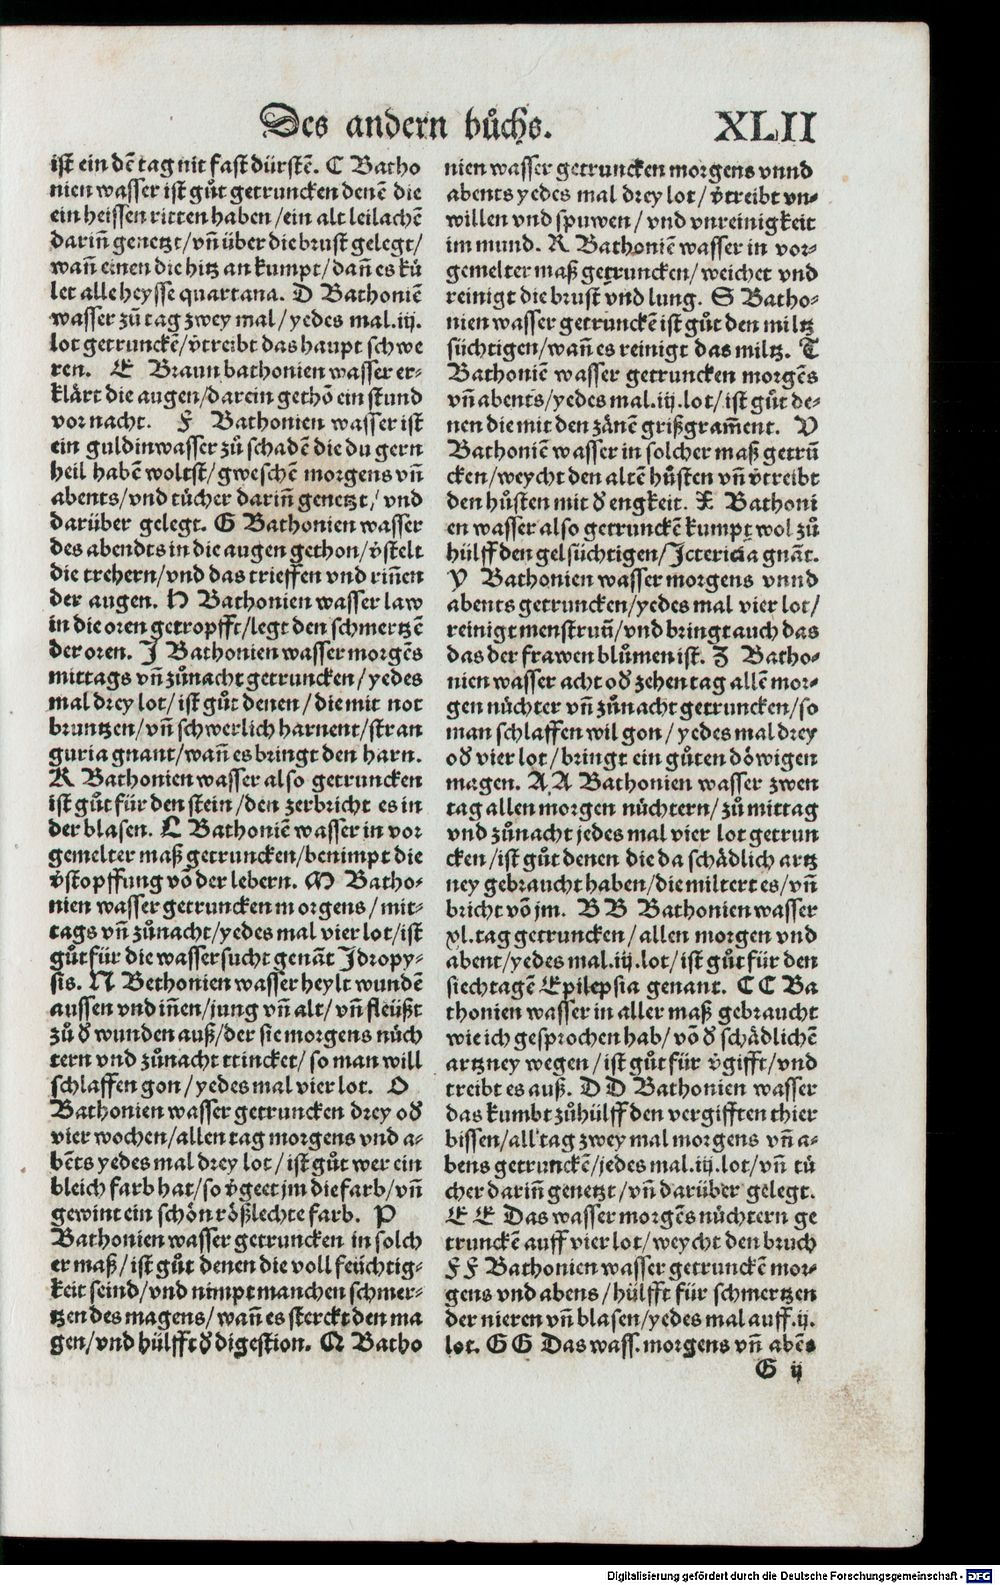 Des andern bůchs. XLII
ist ein dē tag nit fast dürstē. C Batho
nien wasser ist gůt getruncken denē die
ein heissen ritten haben / ein alt leilachē
dariñ genetzt / vñ über die brust gelegt /
wañ einen die hitz an kumpt / dañ es kü
let alle heysse quartana. D Bathoniē
wasser zů tag zwey mal / yedes mal .iij.
lot getrunckē / v̄treibt das haupt schwe
ren. E Braun bathonien wasser er-
klärt die augen / darein gethō ein stund
vor nacht. F Bathonien wasser ist
ein guldin wasser zů schadē die du gern
heil habē woltst / gweschē morgens vñ
abents / vnd tücher dariñ genetzt / vnd
darüber gelegt. G Bathonien wasser
des abendts in die augen gethon / v̄stelt
die trehern / vnd das trieffen vnd riñen
der augen. H Bathonien wasser law
in die oren getropfft / legt den schmertzē
der oren. J Bathonien wasser morgēs
mittags vñ zůnacht getruncken / yedes
mal drey lot / ist gůt denen / die mit not
bruntzen / vñ schwerlich harnent / stran
guria gnant / wañ es bringt den harn.
K Bathonien wasser also getruncken
ist gůt für den stein / den zerbricht es in
der blasen. L Bathoniē wasser in vor
gemelter maß getruncken / benimpt die
v̄stopffung vō der lebern. M Batho-
nien wasser getruncken morgens / mit-
tags vñ zůnacht / yedes mal vier lot / ist
gůt für die wassersucht genāt Jdropy-
sis. N Bethonien wasser heylt wundē
aussen vnd iñen / jung vñ alt / vñ fleüßt
zů d̄ wunden auß / der sie morgens nüch
tern vnd zůnacht ttincket / so man will
schlaffen gon / yedes mal vier lot. O
Bathonien wasser getruncken drey od̄
vier wochen / allen tag morgens vnd a-
bēts yedes mal drey lot / ist gůt wer ein
bleich farb hat / so v̄geet jm die farb / vñ
gewint ein schön rößlechte farb. P
Bathonien wasser getruncken in solch
er maß / ist gůt denen die voll feüchtig-
keit seind / vnd nimpt manchen schmer-
tzen des magens / wañ es sterckt den ma
gen / vnd hülfft d̄ digestion. Q Batho
nien wasser getruncken morgens vnnd
abents yedes mal drey lot / v̄treibt vn-
willen vnd spuwen / vnd vnreinigkeit
im mund. R Bathoniē wasser in vor-
gemelter maß getruncken / weichet vnd
reinigt die brust vnd lung. S Batho-
nien wasser getrunckē ist gůt den miltz
süchtigen / wañ es reinigt das miltz. T
Bathoniē wasser getruncken morgēs
vñ abents / yedes mal .iij. lot / ist gůt de-
nen die mit den zänē grißgram̄ent. V
Bathoniē wasser in solcher maß getrū
cken / weycht den altē hůsten vñ v̄treibt
den hůsten mit d̄ engkeit. X Bathoni
en wasser also getrunckē kumpt wol zů
hülff den gelsüchtigen / Jctericia gnāt.
Y Bathonien wasser morgens vnnd
abents getruncken / yedes mal vier lot /
reinigt menstruū / vnd bringt auch das
das der frawen blůmen ist. Z Batho-
nien wasser acht od̄ zehen tag allē mor-
gen nüchter vñ zůnacht getruncken / so
man schlaffen wil gon / yedes mal drey
od̄ vier lot / bringt ein gůten döwigen
magen. A A Bathonien wasser zwen
tag allen morgen nüchtern / zů mittag
vnd zůnacht jedes mal vier lot getrun
cken / ist gůt denen die da schädlich artz
ney gebraucht haben / die miltert es / vñ
bricht vō jm. B B Bathonien wasser
xl. tag getruncken / allen morgen vnd
abent / yedes mal .iij. lot / ist gůt für den
siechtagē Epilepsia genant. C C Ba
thonien wasser in aller maß gebraucht
wie ich gesprochen hab / vō d̄ schädlichē
artzney wegen / ist gůt für v̄gifft / vnd
treibt es auß. D D Bathonien wasser
das kumbt zůhülff den vergifften thier
bissen / all tag zwey mal morgens vñ a-
bens getrunckē / jedes mal .iij. lot / vñ tü
cher dariñ genetzt / vñ darüber gelegt.
E E Das wasser morgēs nüchtern ge
trunckē auff vier lot / weycht den bruch
F F Bathonien wasser getrunckē mor-
gens vnd abens / hülfft für schmertzen
der nieren vñ blasen / yedes mal auff .ij.
lot. G G Das wass. morgens vñ abēs
G ij
Digitalisierung gefördert durch die Deutsche Forschungsgemeinschaft - DFG